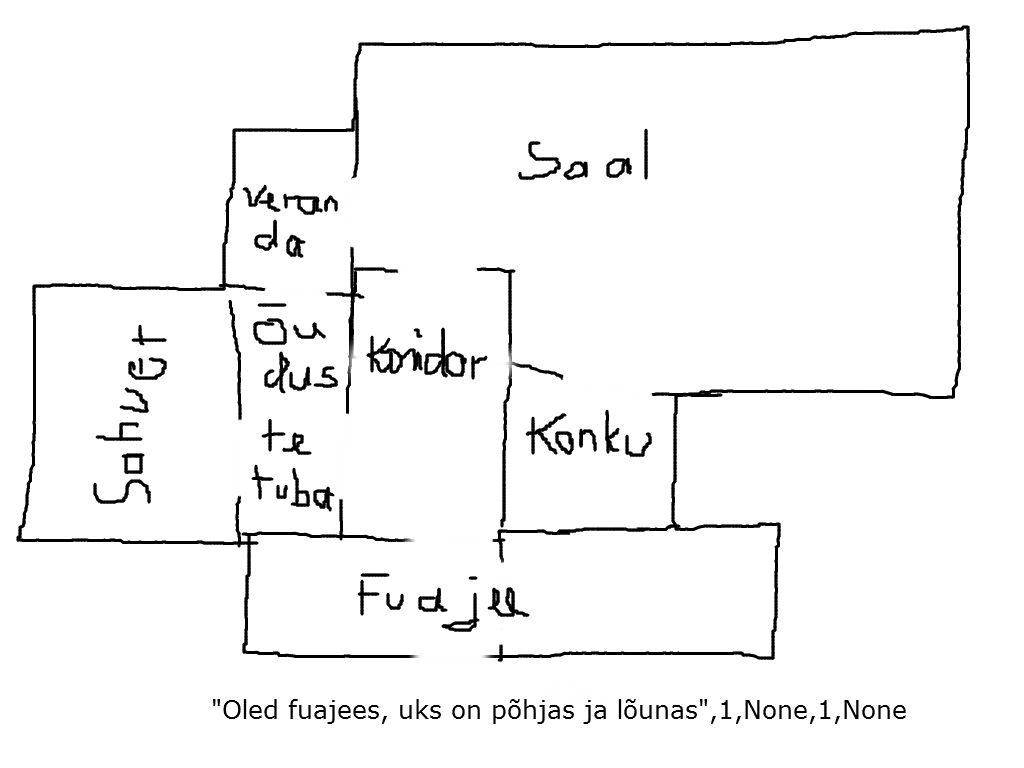 Saal
veran
da
Õu
dus
te
tuba
Sahver
Koridor
Konku
Fuajee
"Oled fuajees, uks on põhjas ja lõunas",1,None,1,None